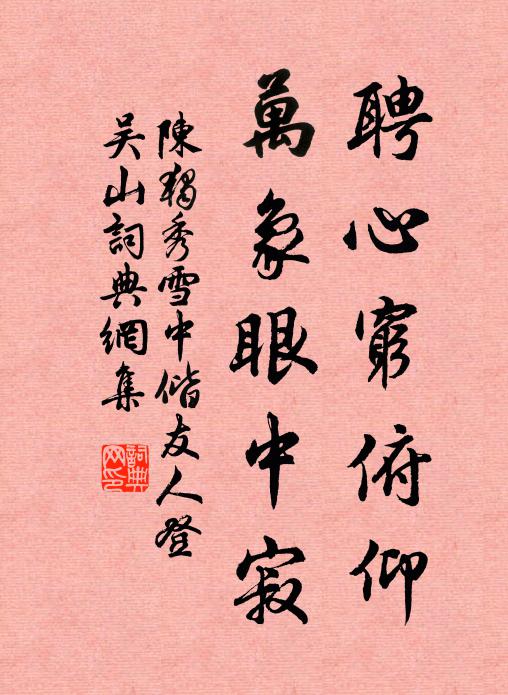 聘心窮俯仰
萬象眼中寂
陳獨秀雪中偕友人登
吴山詞典網集
詞典
网印